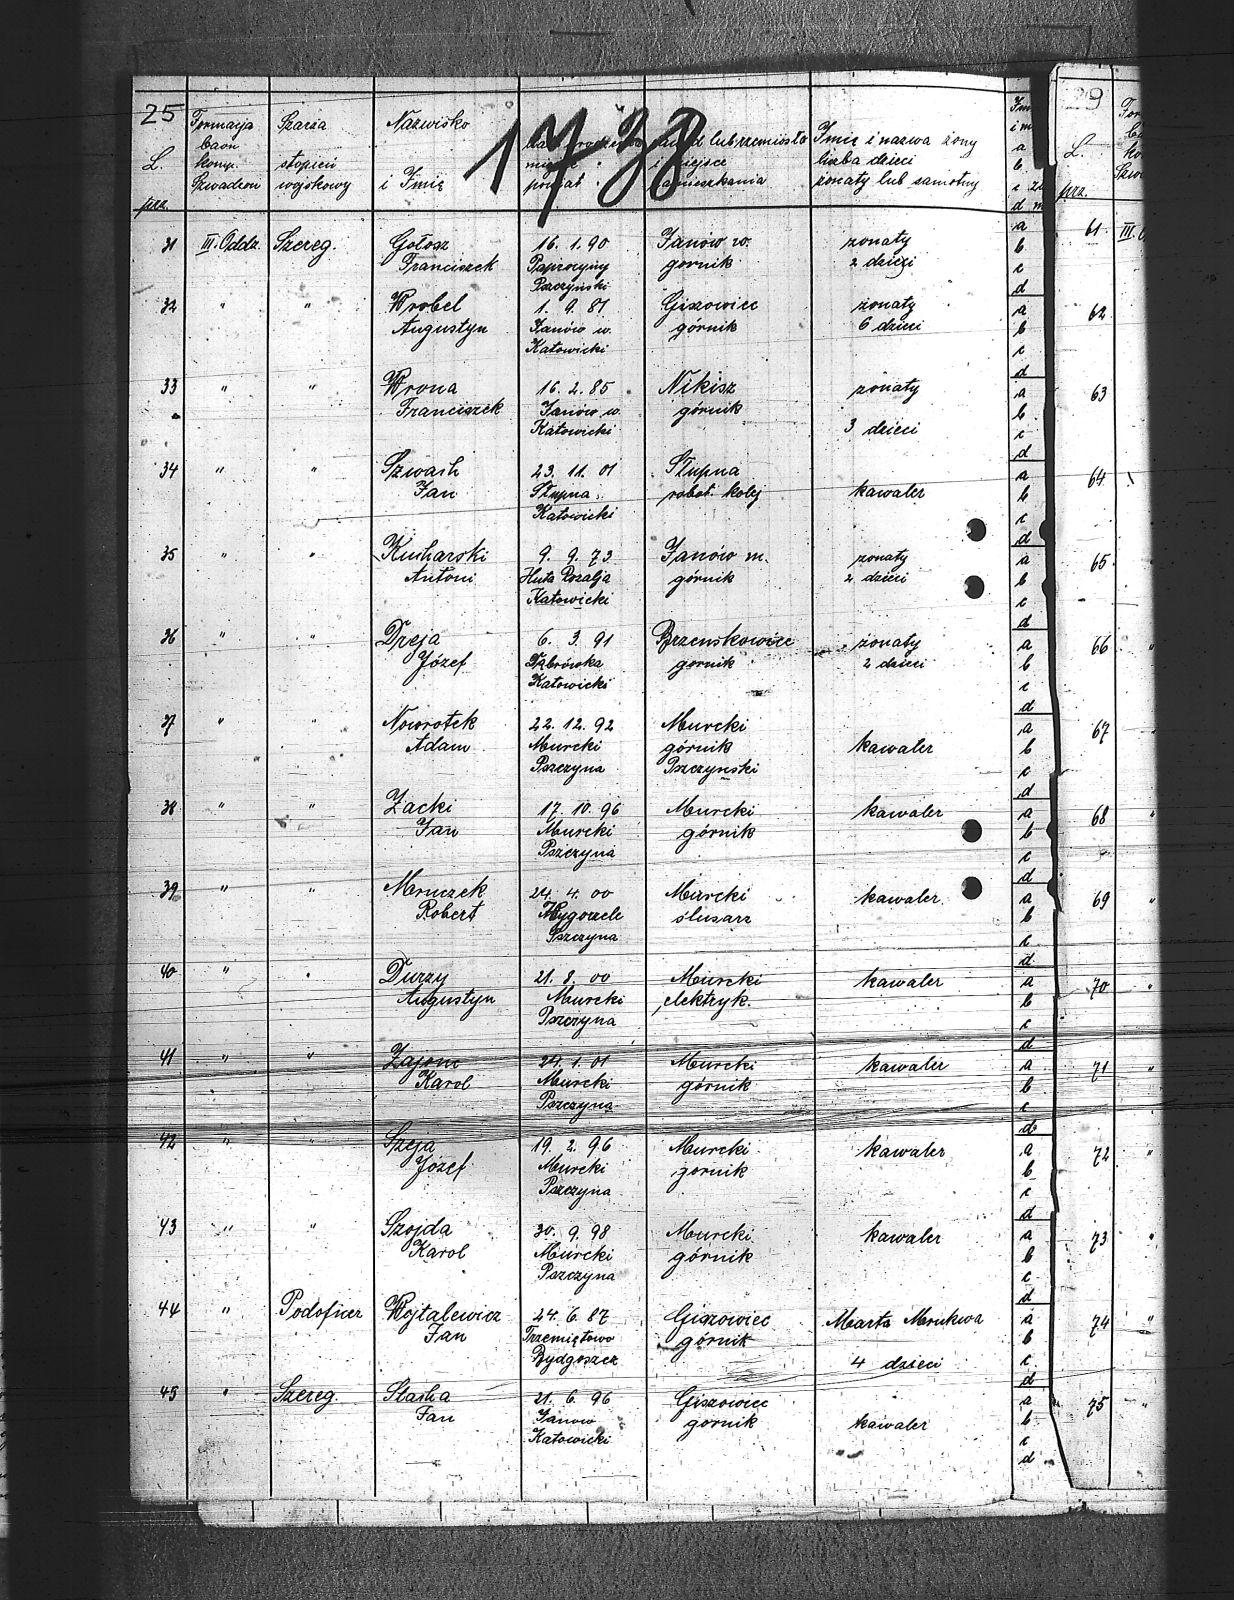 25
1738
L.
prz.
Formacja
baon
komp.
Szwadron
Szarża
stopień
wojskowy
Nazwisko
i Imię
powiat
lub rzemiosło
i miejsce
zamieszkania
Imię i nazwa żony
liczba dzieci
żonaty lub samotny
31 III. Oddz. Szereg. Gołosz 16. 1. 90 Janów w. żonaty
Franciszek Paprocyny gornik 2 dzieci
Pszczyński
32 " " Wrobel 1. 9. 81 Giszowiec żonaty
Augustyn Janów w. górnik 6 dzieci
Katowicki
33 " " Wrona 16. 2. 85 Nikisz żonaty
Franciszek Janów w. górnik
Katowicki 3 dzieci
34 " " 23. 11. 01 Słupna
Jan Słupna robot. kolej kawaler
Katowicki
35 " " Kucharski 9. 9. 73 Janów m. żonaty
Antoni Huta Rozalja górnik 2 dzieci
Katowicki
36 " " Dreja 6. 3. 91 Brzenskowice żonaty
Józef Dąbrówka gornik 2 dzieci
Katowicki
37 " " Noworotek 22. 12. 92 Murcki
Adam Murcki górnik kawaler
Pszczyna Pszczynski
38 " " Zacki 17. 10. 96 Murcki kawaler
Jan Murcki górnik
Pszczyna
39 " " Mruczek 24. 4. 00 Murcki kawaler
Robert ślusarz
Pszczyna
40 " " Durzy 21. 8. 00 Murcki kawaler
Augustyn Murcki elektryk.
Pszczyna
41 " " Zajonc 24. 1. 01 Murcki kawaler
Karol Murcki górnik
Pszczyna
42 " " Szeja 19. 2. 96 Murcki kawaler
Józef Murcki gornik
Pszczyna
43 " " Szojda 30. 9. 98 Murcki kawaler
Karol Murcki górnik
Pszczyna
44 " Podoficer Wojtalewicz 24. 6. 87 Giszowiec Marta Mrukwa
Jan Trzemiętowo górnik
Bydgoszcz 4 dzieci
45 " Szereg. Stacha 21. 6. 96 Giszowiec
Jan Janow gornik kawaler
Katowicki
a
b
c
d
29
L.
prz.
61 III.
62
63
64
65
66 "
67 "
68 "
69 "
70 "
71 "
72 "
73 "
74 "
75 "